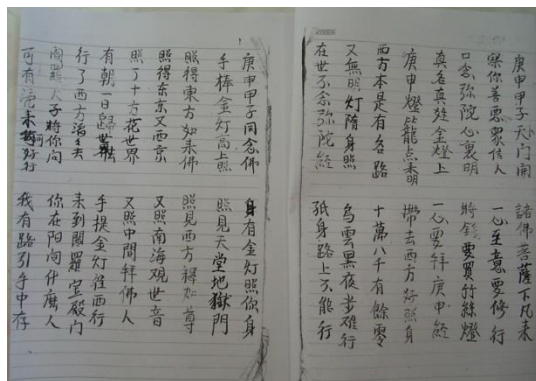 庚申甲子天门開 諸佛菩薩下凡来
察你善惡眾信人 一心至意要修行
口念弥院心裏明 時錢要買竹絲燈
真名真姓金燈上 一心要拜庚申経
庚申燈籠点来明 帶去西方好照身
西方本是有名路 十萬八千有餘零
又無明灯隨身照 烏雲黑夜步难行
在世不念弥院経 孤身路上不能行
庚申甲子同念佛 身有金灯照你身
手棒金灯高上照 照見天堂地獄門
照得東方如来佛 照見西方如尊
照得东京又西京 又照南海观世音
照了十方花世界 又照中間拜佛人
有朝一日歸世 手提金灯往西行
行了西方去 来到閻羅宝殿门
閻羅天子將你问 你在阳间什麽人
可有行 我有路引手中存